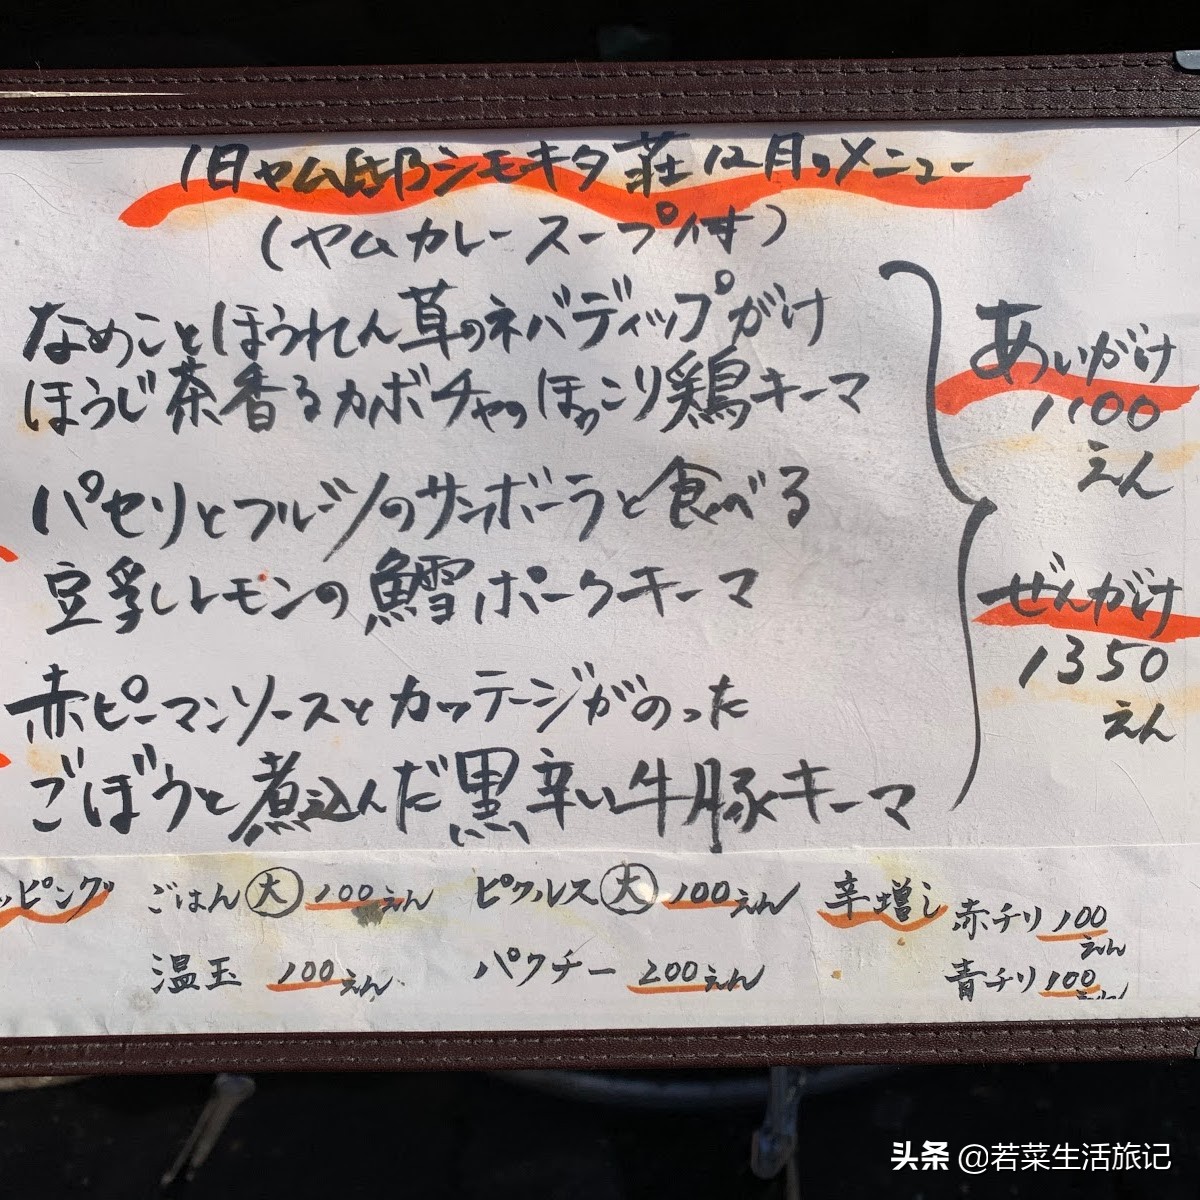 旧ヤム邸シモキタ荘12月のメニュー
(ヤムカレースープ付)
なめことほうれん草のネバディップがけ
ほうじ茶香るカボチャのほっこり鶏キーマ
パセリとフルーツのサンボーラと食べる
豆乳レモンの鱈ポークキーマ
赤ピーマンソースとカッテージがのった
ごぼうと煮込んだ黒辛い牛豚キーマ
あいがけ
1100
えん
ぜんがけ
1350
えん
ッピング ごはん大 100えん ピクルス大 100えん 辛増し 赤チリ 100えん
温玉 100えん パクチー 200えん 青チリ 100えん
头条 @若菜生活旅记